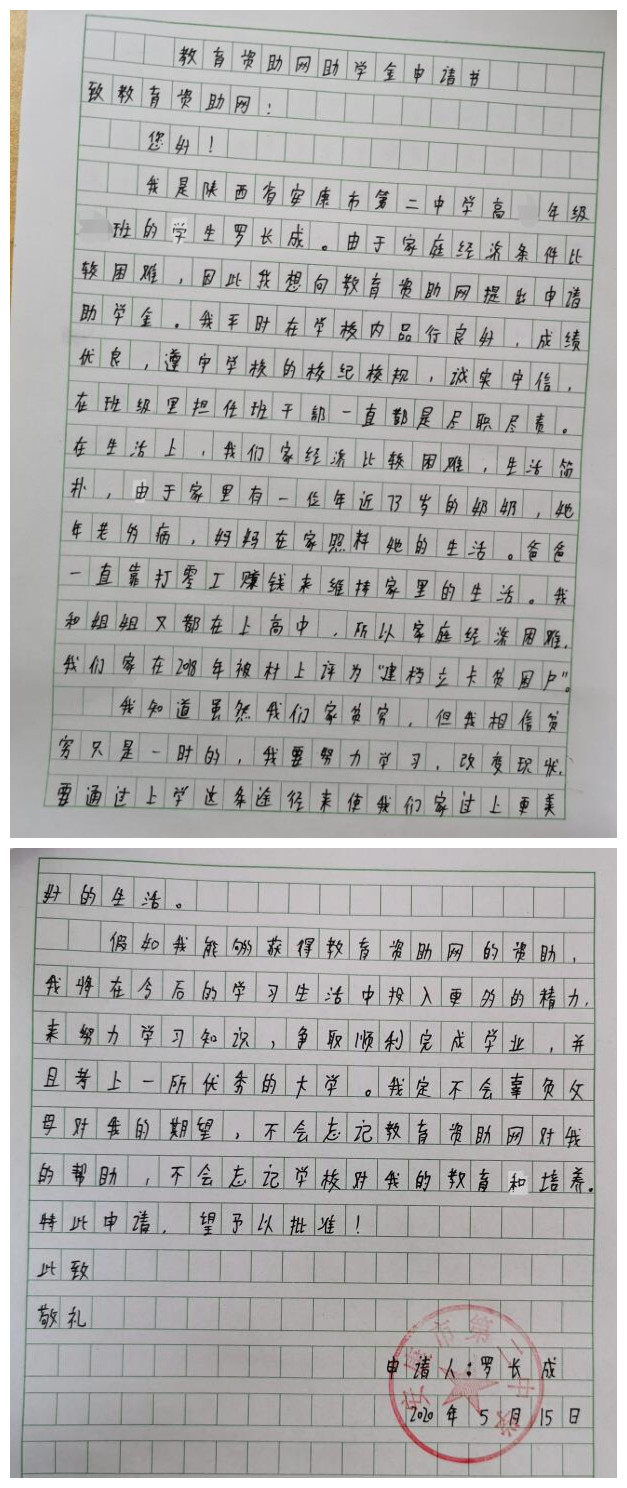 教育资助网助学金申请书
致教育资助网：
您好！
我是陕西省安康市第二中学高 年级
班的学生罗长成。由于家庭经济条件比
较困难，因此我想向教育资助网提出申请
助学金。我平时在学校内品行良好，成绩
优良，遵守学校的校纪校规，诚实守信，
在班级里担任班干部一直都是尽职尽责。
在生活上，我们家经济比较困难，生活简
朴，由于家里有一位年近73岁的奶奶，她
年老多病，妈妈在家照料她的生活。爸爸
一直靠打零工赚钱来维持家里的生活。我
和姐姐又都在上高中，所以家庭经济困难，
我们家在2018年被村上评为“建档立卡贫困户”。
我知道虽然我们家贫穷，但我相信贫
穷只是一时的，我要努力学习，改变现状，
要通过上学这条途径来使我们家过上更美
好的生活。
假如我能够获得教育资助网的资助，
我将在今后的学习生活中投入更多的精力，
来努力学习知识，争取顺利完成学业，并
且考上一所优秀的大学。我定不会辜负父
母对我的期望，不会忘记教育资助网对我
的帮助，不会忘记学校对我的教育和培养。
特此申请，望予以批准！
此致
敬礼
申请人：罗长成
2020年5月15日
安康市第二中学